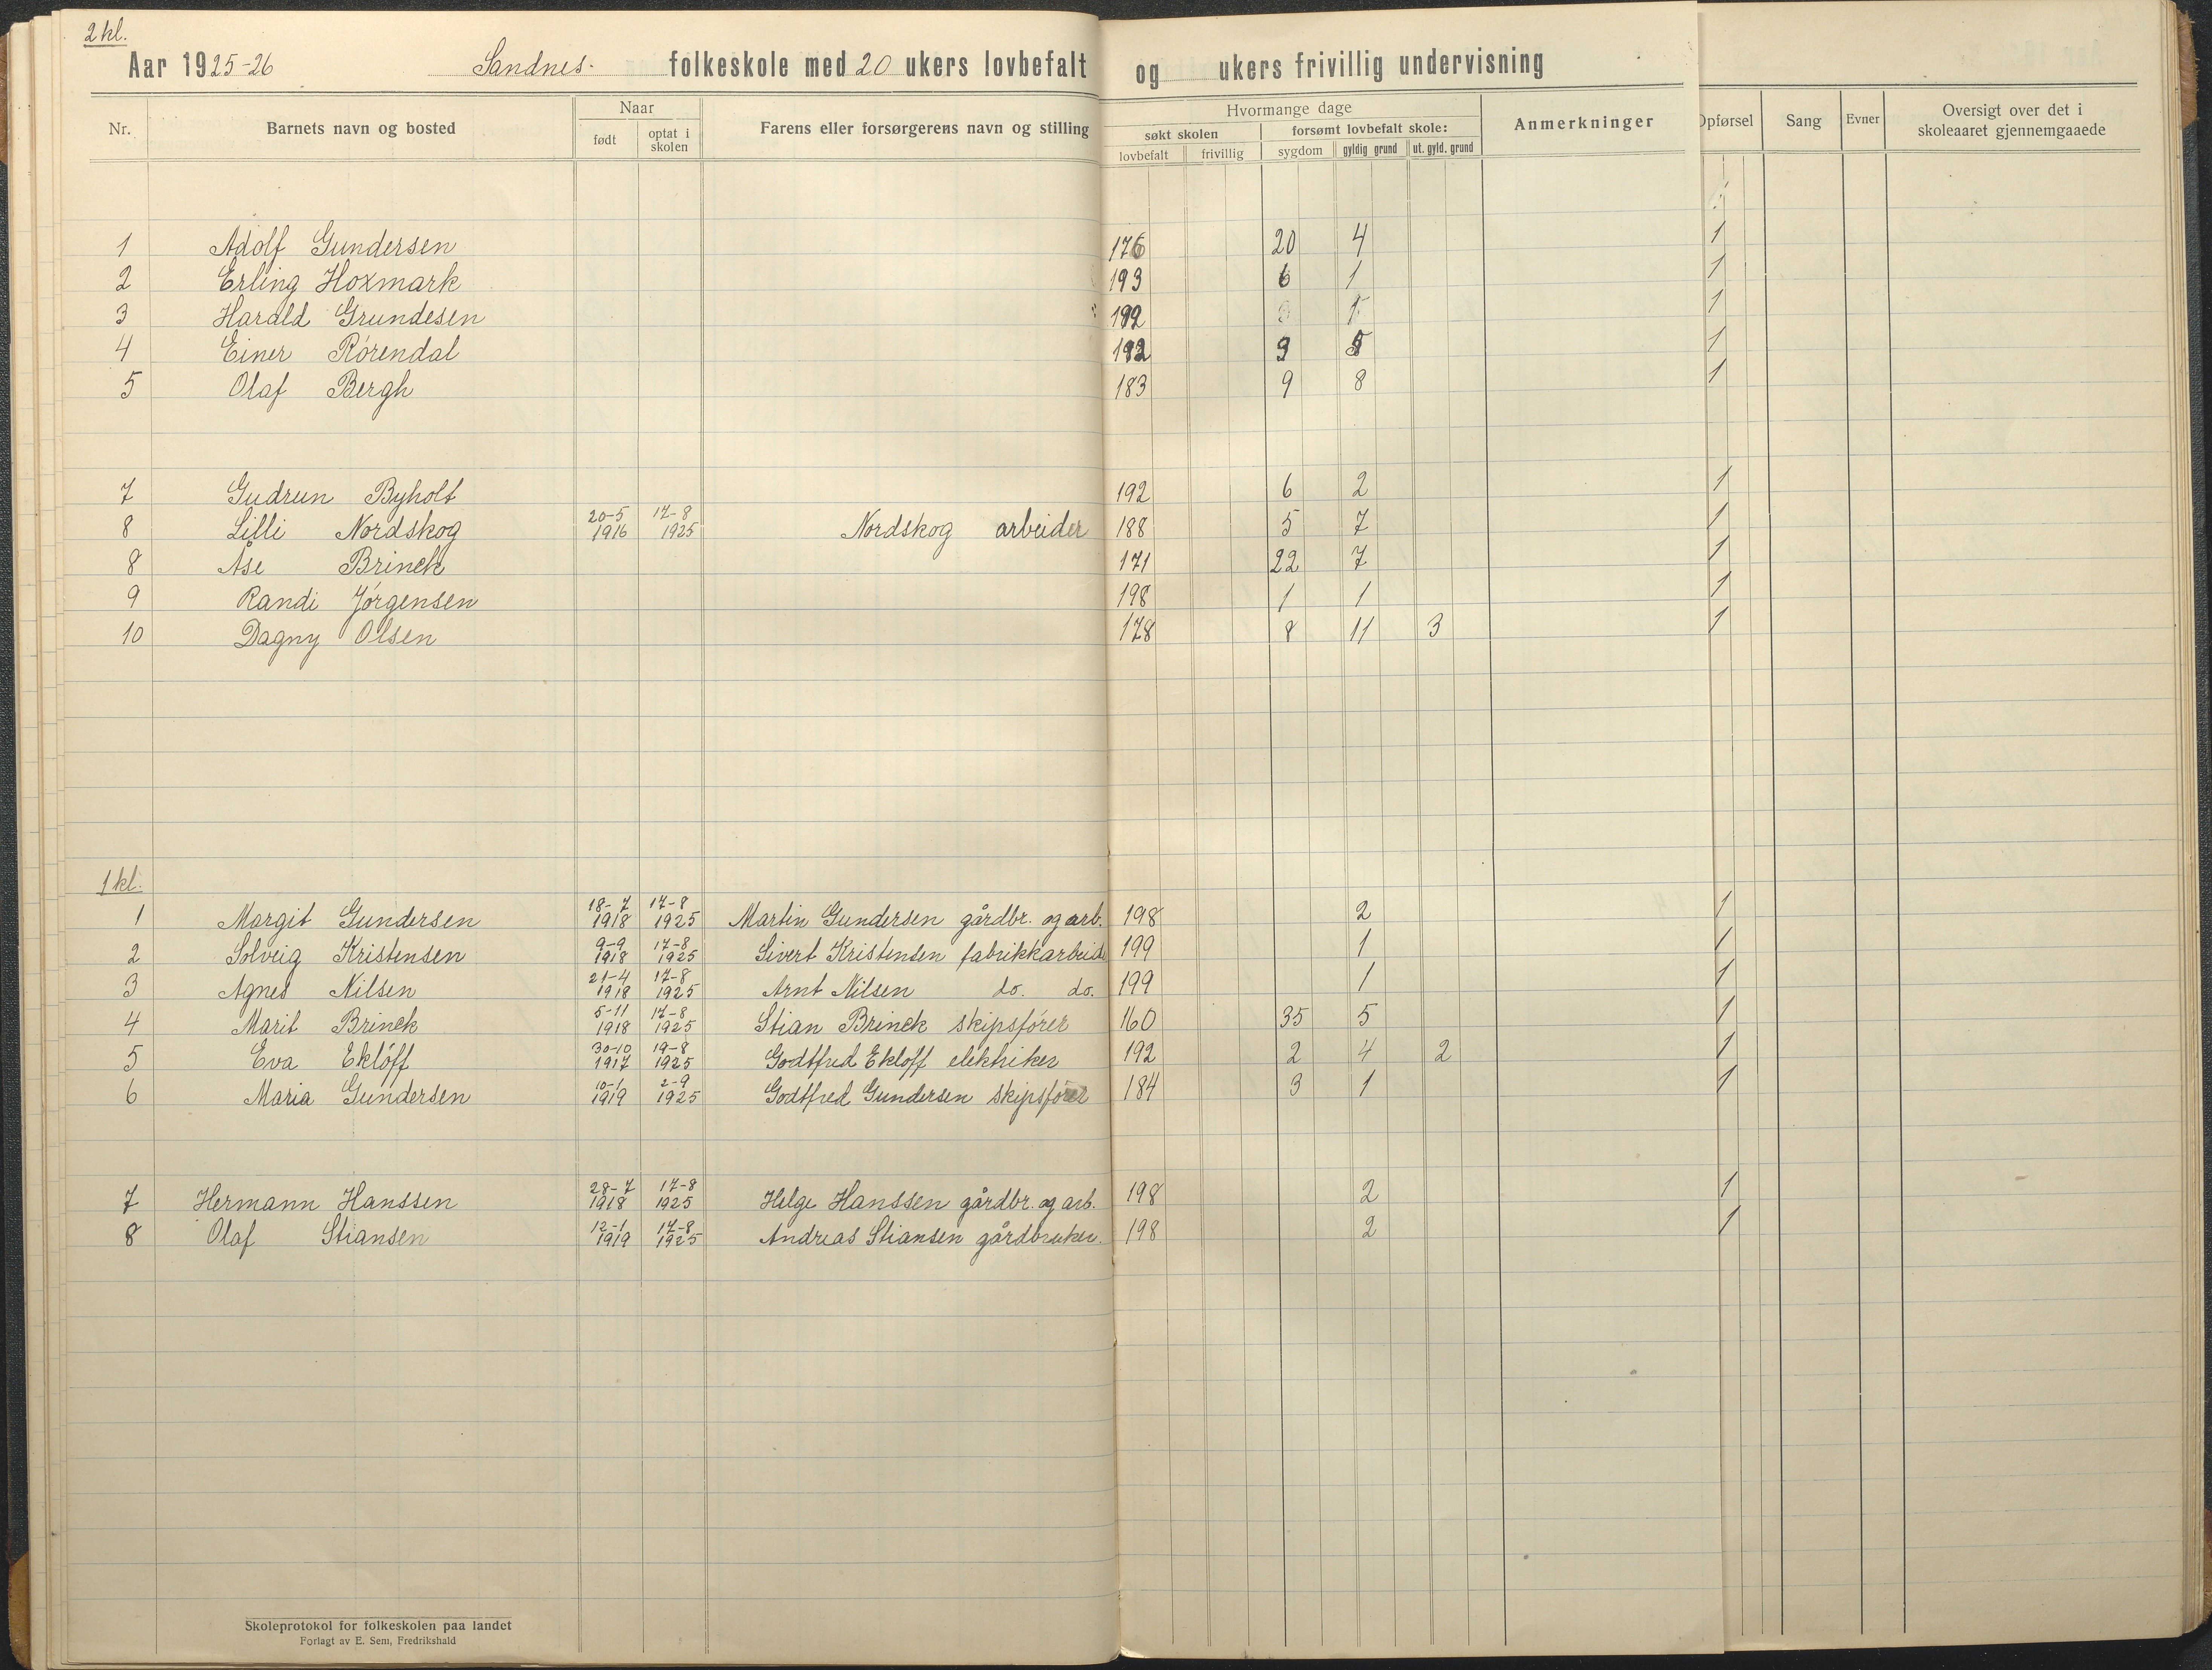 2 kl.
Aar 1925-26 Sandnes. folkeskole med 20 ukers lovbefalt og ukers frivillig undervisning
Nr. Barnets navn og bosted Naar født optat i skolen Farens eller forsørgerens navn og stilling Hvormange dage søkt skolen lovbefalt frivillig forsømt lovbefalt skole: sygdom gyldig grund ut. gyld. grund Anmerkninger Opførsel Sang Evner Oversigt over det i skoleaaret gjennemgaaede
1 Adolf Gundersen 176 20 4 1
2 Erling Hoxmark 193 6 1 1
3 Harald Grundesen 1 1
4 Einer Rörendal 9 1
5 Olaf Bergh 183 9 8 1
7 Gudrun Byholt 192 6 2 1
8 Lilli Nordskog 20-5 1916 17-8 1925 Nordskog arbeider 188 5 7 1
8 Åse Brinck 171 22 7 1
9 Randi Jörgensen 198 1 1 1
10 Dagny Olsen 178 8 11 3 1
1 kl.
1 Margit Gundersen 18-7 1918 17-8 1925 Martin Gundersen gårdbr. og arb. 198 2 1
2 Solveig Kristensen 9-9 1918 17-8 1925 Sivert Kristensen fabrikkarbeide 199 1 1
3 Agnes Nilsen 21-4 1918 17-8 1925 Arnt Nilsen do. do. 199 1 1
4 Marit Brinck 5-11 1918 17-8 1925 Stian Brinck skipsförer 160 35 5 1
5 Eva Eklöff 30-10 1917 19-8 1925 Godtfred Ekloff elektriker 192 2 4 2 1
6 Maria Gundersen 10-1 1919 2-9 1925 Godtfred Gundersen skipsförer 184 3 1 1
7 Hermann Hanssen 28-7 1918 17-8 1925 Helge Hanssen gårdbr. og arb. 198 2 1
8 Olaf Stiansen 12-1 1919 17-8 1925 Andreas Stiansen gårdbruker. 198 2 1
Skoleprotokol for folkeskolen paa landet
Forlagt av E. Sem, Fredrikshald